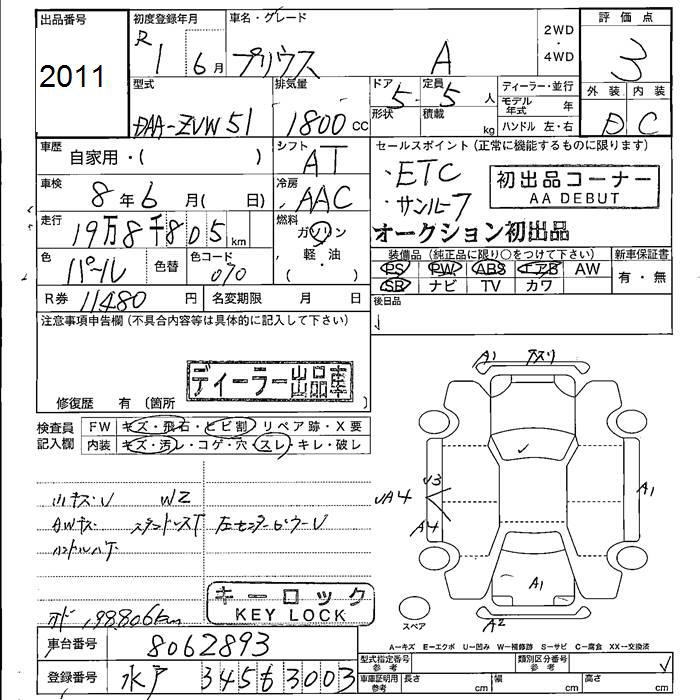 出品番号
2011
初度登録年月
R1 6月
車名・グレード
プリウス A
2WD
・
4WD
評価点
3
外装 内装
D C
型式
DAA-ZVW51
排気量
1800 CC
ドア
5
定員
5 人
形状
積載
kg
ディーラー・並行
モデル年式 年
ハンドル 左・右
車歴
自家用・( )
シフト
AT
セールスポイント(正常に機能するものに限ります)
・ETC
・サンルーフ
初出品コーナー
AA DEBUT
オークション初出品
車検
8年6月( 日)
冷房
AAC
走行
19万8千805km
燃料
ガソリン
軽・油
・( )
色
パール
色替
色コード
070
装備品(純正品に限り○をつけて下さい)
PS PW ABS エアB AW
SR ナビ TV カワ
新車保証書
有・無
R券 11480 円
名変期限 月 日
後日品
注意事項申告欄(不具合内容等は具体的に記入して下さい)
ディーラー出品車
修復歴 有 (箇所 )
検査員記入欄
FW キズ・飛石・ヒビ割・リペア跡・X要
内装 キズ・汚レ・コゲ・穴・スレ・キレ・破レ
W2
AWキズ
ハンドルハゲ
198,806km
キーロック
KEY LOCK
A1
A1
A4
A1
A2
スペア
A=キズ E=エクボ U=凹み W=補修跡 S=サビ C=腐食 XX=交換済
車台番号
8062893
登録番号
水戸 345 も 3003
型式指定番号
参考
類別区分番号
参考
車庫証明用
参考
長さ cm
幅 cm
高さ cm